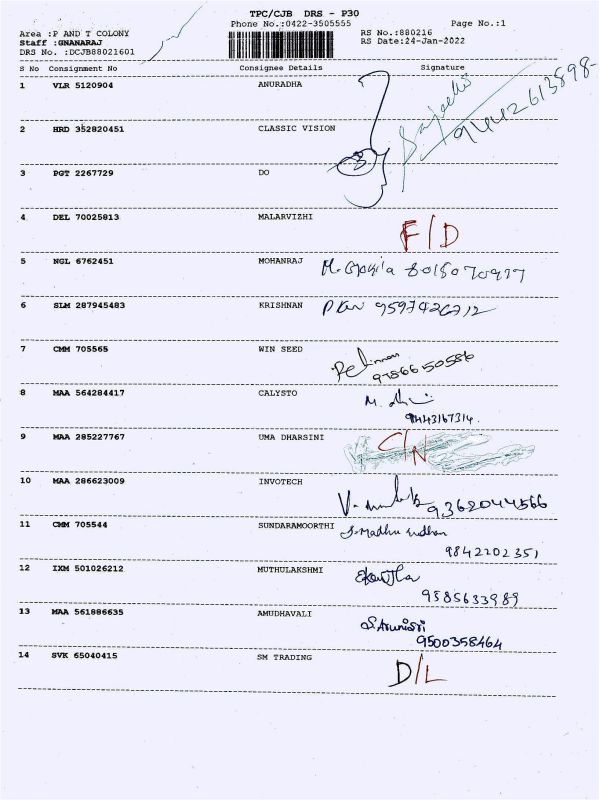 TPC/CJB DRS - P30
Phone No.:0422-3505555 Page No.:1
Area :P AND T COLONY RS No.:880216
Staff :GNANARAJ RS Date:24-Jan-2022
DRS No. :DCJB88021601
S No Consignment No Consignee Details Signature
1 VLR 5120904 ANURADHA
9442613898-
2 HRD 352820451 CLASSIC VISION
3 PGT 2267729 DO
4 DEL 70025813 MALARVIZHI F/D
5 NGL 6762451 MOHANRAJ
6 SLM 287945483 KRISHNAN
7 CMM 705565 WIN SEED
9786650586
8 MAA 564284417 CALYSTO
9443167314.
9 MAA 285227767 UMA DHARSINI C/N
10 MAA 286623009 INVOTECH 9362044566
11 CMM 705544 SUNDARAMOORTHI
9842202351
12 IXM 501026212 MUTHULAKSHMI
9585633989
13 MAA 561886635 AMUDHAVALI
9500358464
14 SVK 65040415 SM TRADING D/L